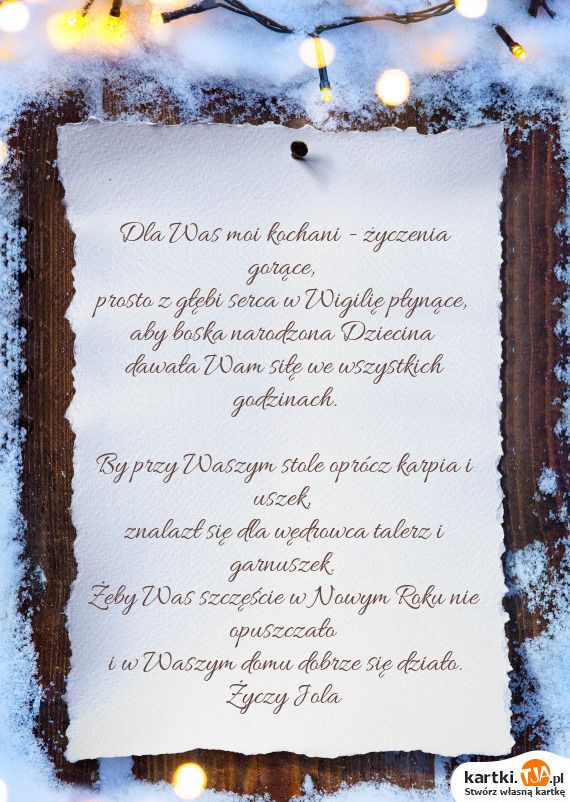 Dla Was moi kochani - życzenia
gorące,
prosto z głębi serca w Wigilię płynące,
aby boska narodzona Dziecina
dawała Wam siłę we wszystkich
godzinach.
By przy Waszym stole oprócz karpia i
uszek,
znalazł się dla wędrowca talerz i
garnuszek.
Żeby Was szczęście w Nowym Roku nie
opuszczało
i w Waszym domu dobrze się działo.
Życzy Jola
kartki.TJA.pl
Stwórz własną kartkę